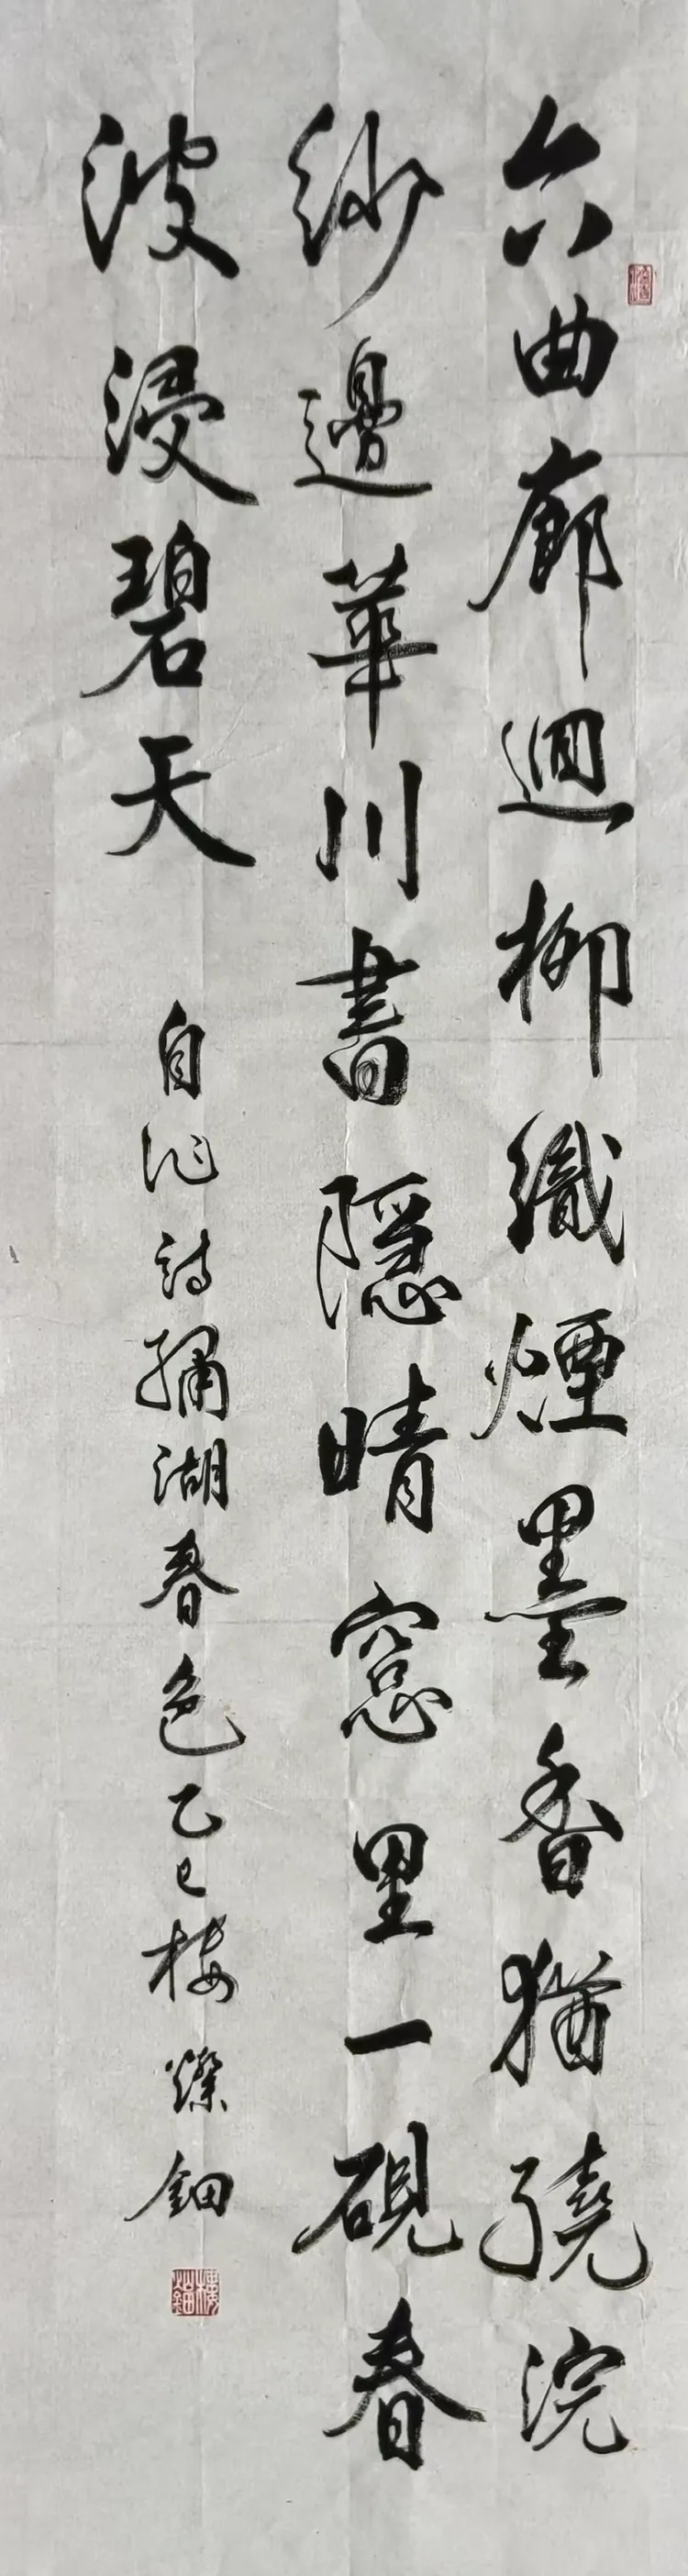 六曲廊迴柳織煙墨香猶繞浣
紗邊華川書隱晴窓里一硯春
波浸碧天
自作詩繡湖春色乙巳楼燦鈿